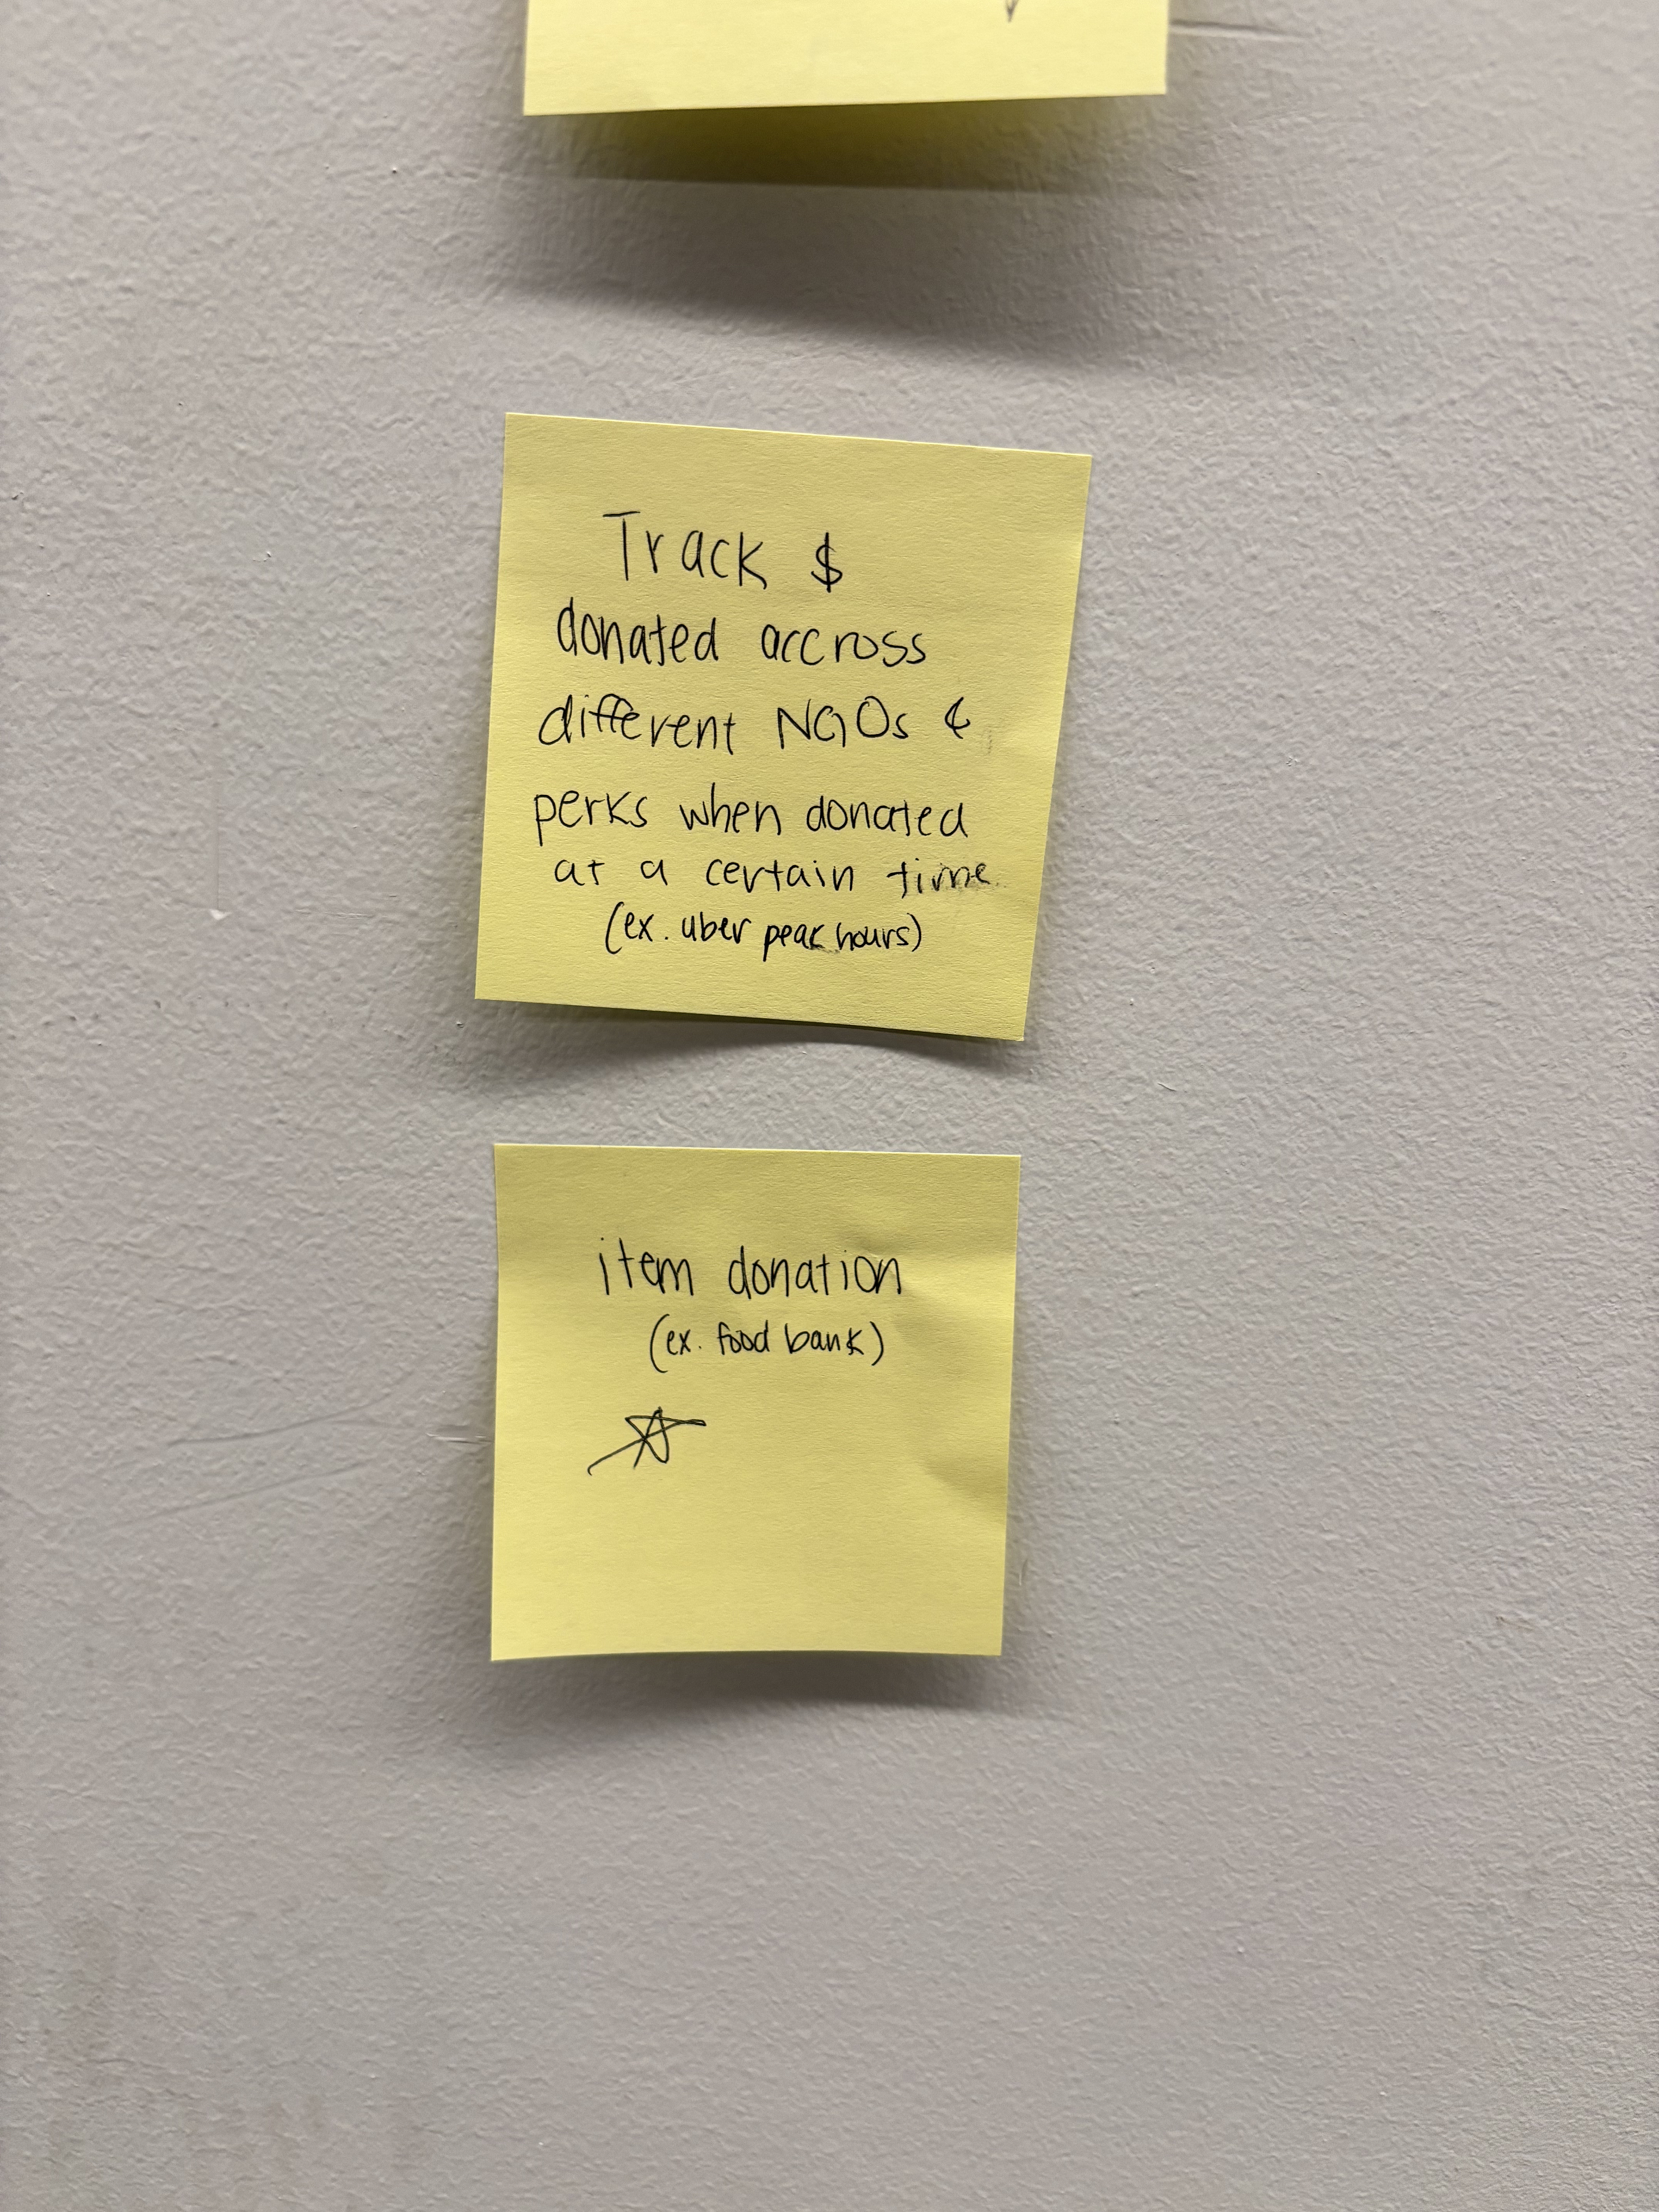 Track $
donated accross
different NGOs &
perks when donated
at a certain time
(ex. uber peak hours)
item donation
(ex. food bank)